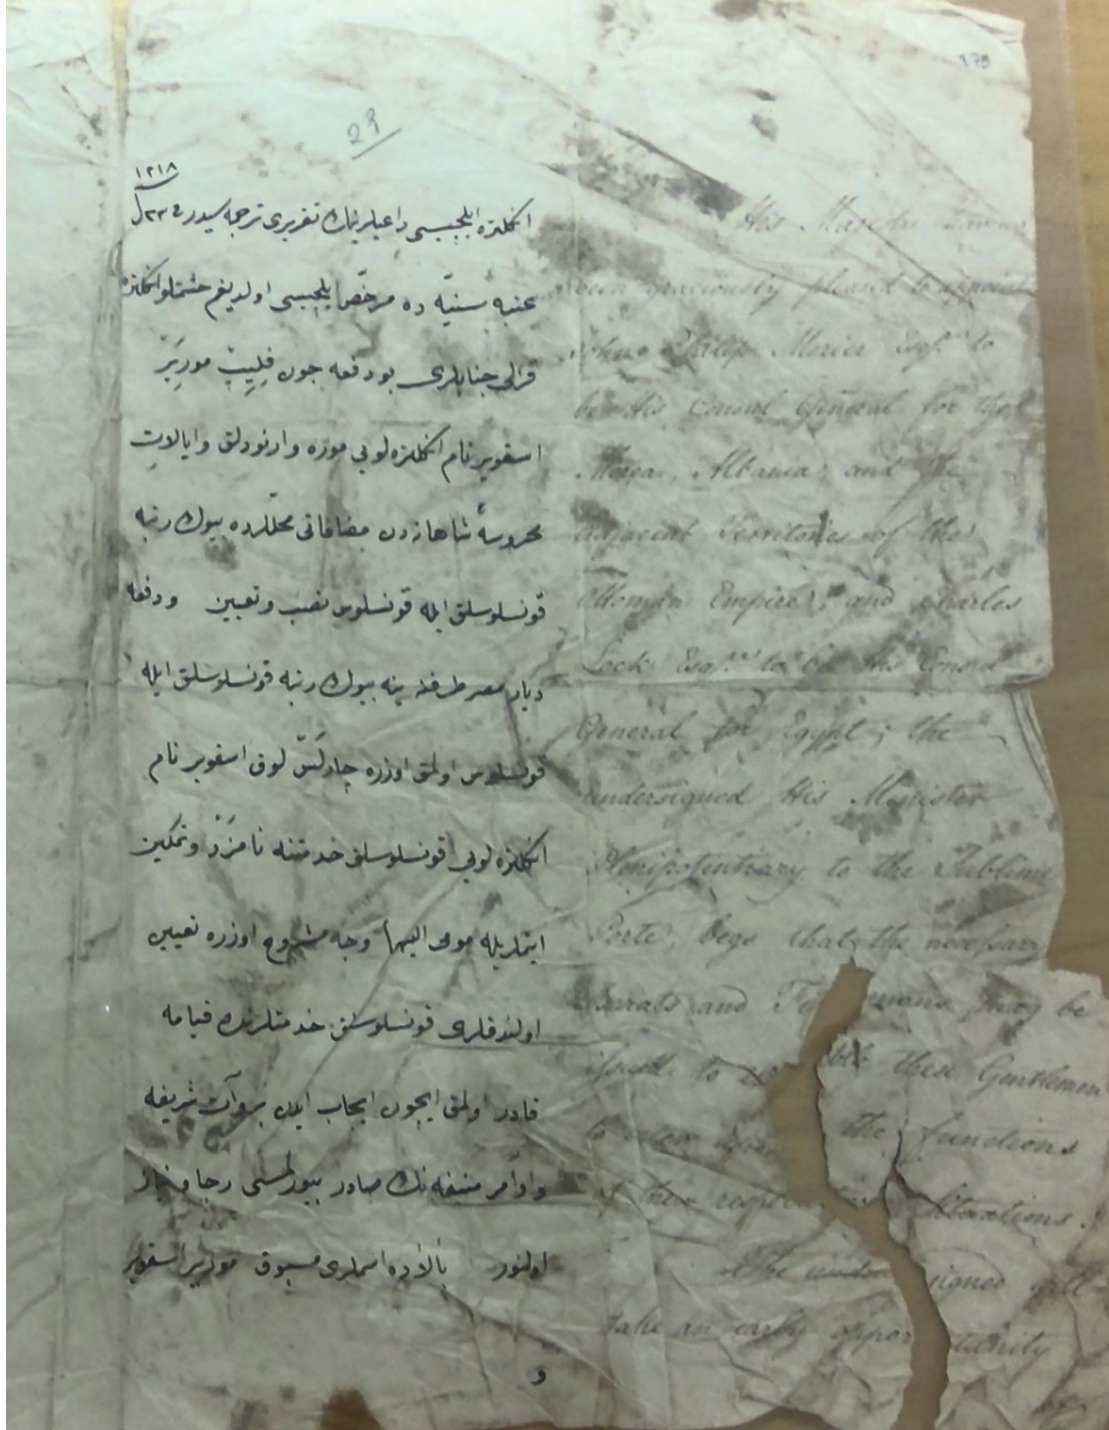 175
29
١٢١٨
انكلتره ايلچيسى داعيلرينك تقريرى ترجمه سيدر
عتبهٔ سنيّه ده مرخّص ايلچيسى اولديغم حشمتلو انكلتره
قرالى جنابلرى بو دفعه جون فِليپ مورِيَرْ
اسقوير نام انكلتره لويى موره و ارنودلق و ايالاتِ
محروسهٔ شاهانه دن مضافاتى محللرده بيوك رتبه
قونسلوسلق ايله قونسلوس نصب و تعيين و دفعه
ديار مصر طرفنه ينه بيوك رتبه قونسلوسلق ايله
قونسلوس اولمق اوزره چارلَسْ لوق اسقوير نام
انكلتره لويى قونسلوسلق خدمتنه نامزَدْ و تمكين
ايتمرايله مومى اليهما وجه مشروح اوزره تعيين
اولندقلرى قونسلوسلق خدمتلرينك قيامه
قادر اولمق ايچون ايجاب ايدن بروآت شريفه
و اوامر منيفه نك صادر بيورلمسى رجا و نياز
اولنور بالاده اسملرى مسبوق موريير اسقوير
و
His Majesty having
been graciously pleased to appoint
John Philip Morier Esqr. to
be His Consul General for the
Morea, Albania, and the
adjacent Territories of the
Ottoman Empire, and Charles
Lock Esqre. to be His Consul
General for Egypt; the
undersigned His Minister
Plenipotentiary to the Sublime
Porte, begs that the necessary
Barats and Firmans may be
issued to enable these Gentlemen
to enter upon the functions
of their respective situations.
The undersigned will
take an early opportunity
of